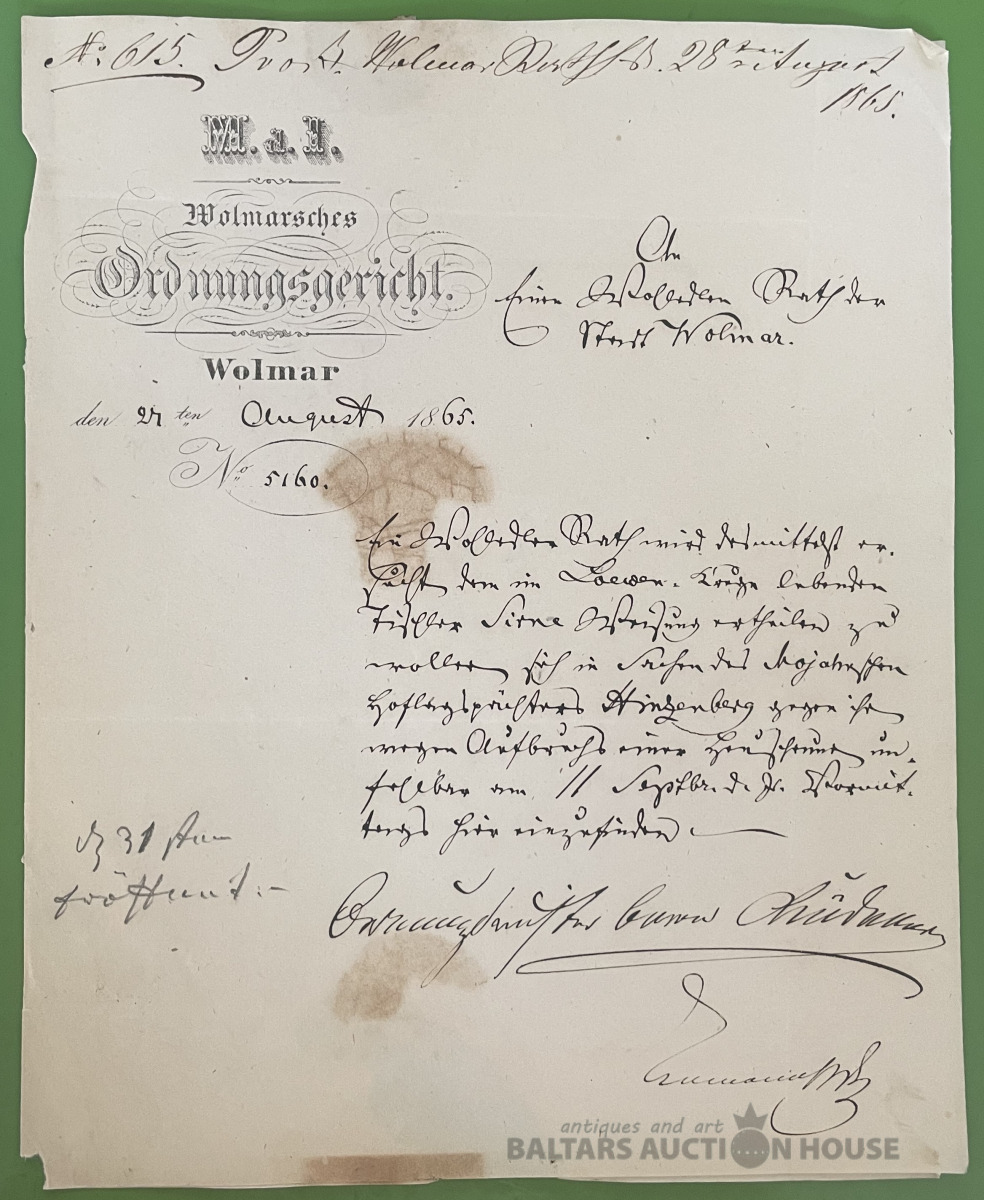 No 615. Prod. Wolmar Rathh. d. 28ten August
1865.
M. a. I.
Wolmarsches
Ordnungsgericht.
Wolmar
den 27 ten August 1865.
No 5160.
An
Einen Wohledlen Rath der
Stadt Wolmar.
Ein Wohledler Rath wird desmittelst er-
sucht dem im Loewen-Kruge lebenden
Tischler Weisung ertheilen zu
wollen sich in Sachen des Mojahnschen
Hoflagspächters Hintzenberg gegen ihn
wegen Aufbruchs einer Heuscheune un-
fehlbar am 11 Septbr. d. Js. Vormit-
tags hier einzufinden.
d 31sten
eröffnet.-
Ordnungsrichter Baron
antiques and art
BALTARS AUCTION HOUSE